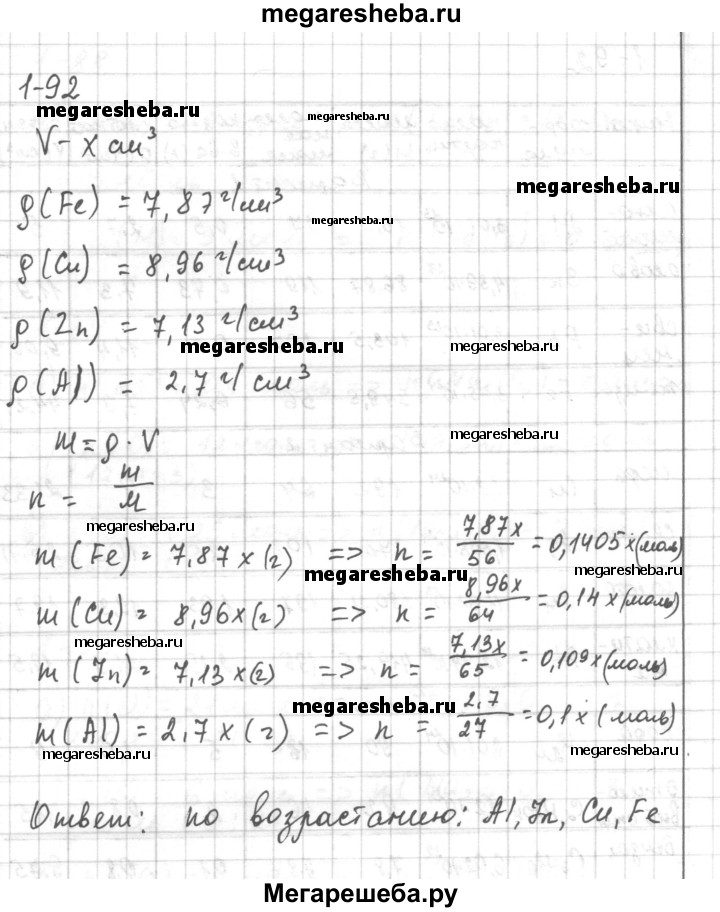 megaresheba.ru
1-92
megaresheba.ru
megaresheba.ru
V - x см³
megaresheba.ru
ρ(Fe) = 7,87 г/см³
megaresheba.ru
ρ(Cu) = 8,96 г/см³
ρ(Zn) = 7,13 г/см³
megaresheba.ru
megaresheba.ru
ρ(Al) = 2.7 г/см³
m = ρ · V
megaresheba.ru
n = m/M
megaresheba.ru
m(Fe) = 7,87x (г) => n = 7,87x/56 = 0,1405x (моль)
megaresheba.ru
megaresheba.ru
m(Cu) = 8,96x (г) => n = 8,96x/64 = 0,14x (моль)
megaresheba.ru
m(Zn) = 7,13x (г) => n = 7,13x/65 = 0,109x (моль)
megaresheba.ru
m(Al) = 2,7x (г) => n = 2,7/27 = 0,1x (моль)
megaresheba.ru
megaresheba.ru
Ответ: по возрастанию: Al, Zn, Cu, Fe
Мегарешеба.ру